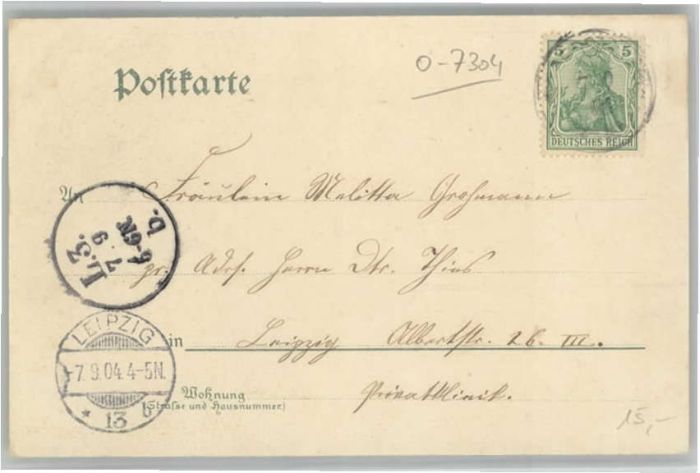 Postkarte
O-7304
5 5
DEUTSCHES REICH
An Fräulein Melitta Großmann
pr. Adrs. Herrn Dr. Thies
in Leipzig Albertstr. 26 III.
Wohnung
(Strasse und Hausnummer)
Privatklinik.
L.3.
7. 9
6-9N
b.
LEIPZIG
7.9.04.4-5N.
* 13 b
15,-